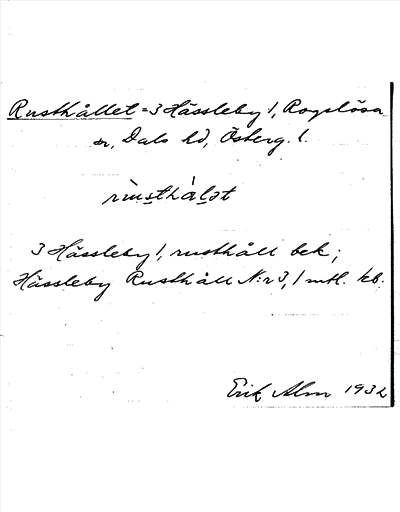 Rusthållet = 3 Hässleby 1, Rogslösa
sn, Dals hd, Österg. l.
3 Hässleby 1, rusthåll bek;
Hässleby Rusthåll N:r 3, 1 mtl. kb.
Erik Alm 1932